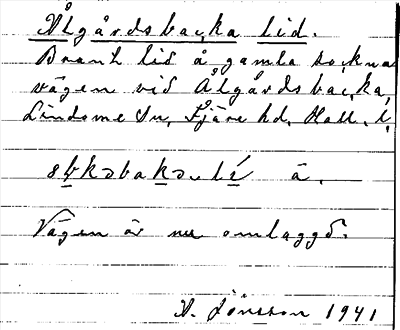 Ålgårdsbacka lid.
Brant lid å gamla sockna
vägen vid Ålgårdsbacka,
Lindome Sn, Fjäre hd. Hall. l.
ä.
Vägen är nu omlaggd.
A. Jönsson 1941